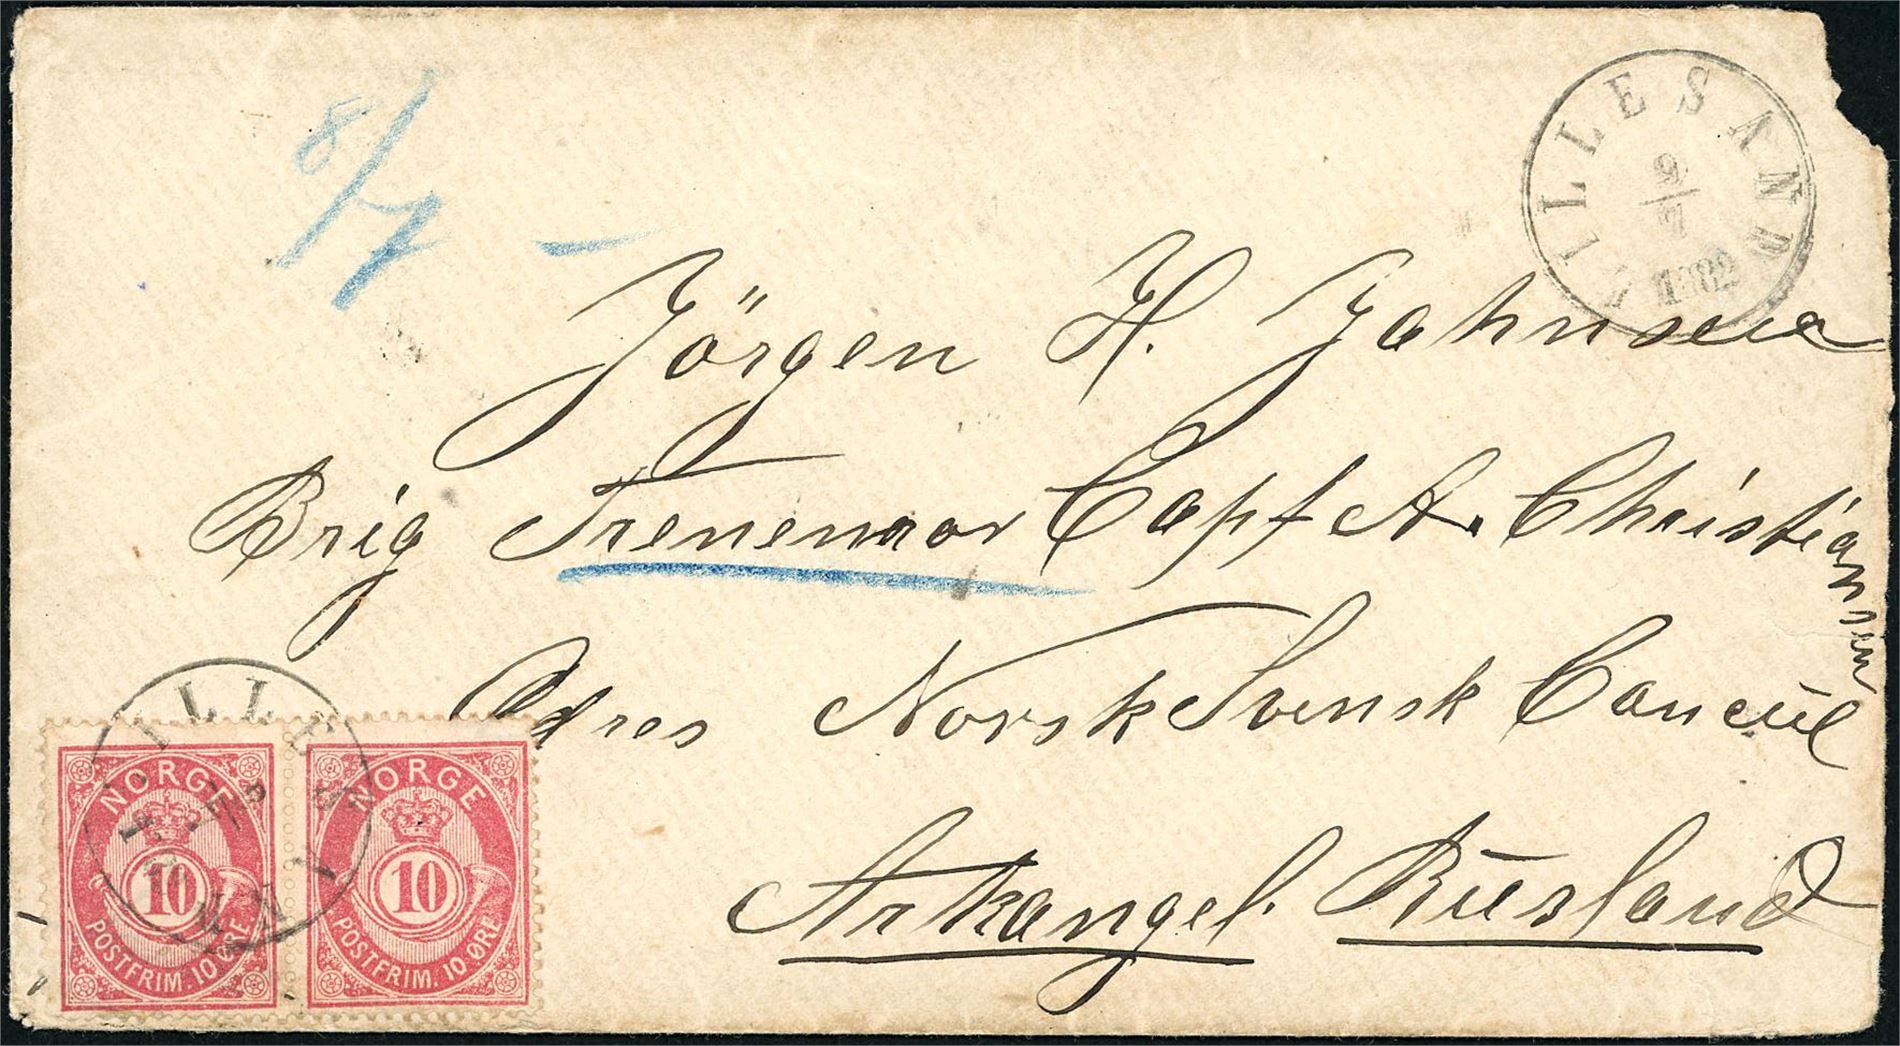 8/7 –
LILLESAND
9
7
1882
Jörgen H. Jahnsen
Brig Trenemor Capt A. Christiansen
Adres Norsk Svensk Concul
Arkangel. Rusland
LILLESAND
NORGE
10
POSTFRIM. 10 ØRE
NORGE
10
POSTFRIM. 10 ØRE